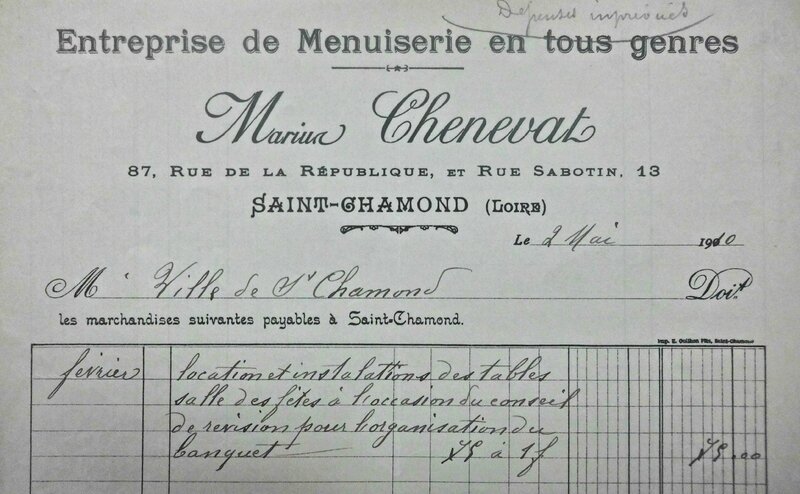 Dépenses imprévues
Entreprise de Menuiserie en tous genres
Marius Chenevat
87, Rue de la République, et Rue Sabotin, 13
SAINT-CHAMOND (Loire)
Le 2 Mai 1910
M Ville de St Chamond Doit
les marchandises suivantes payables à Saint-Chamond.
Imp. E. Guilhon Fils, Saint-Chamond
février location et instalations des tables
salle des fêtes à l'occasion du conseil
de revision pour l'organisation du
banquet 75 à 1f 75.00